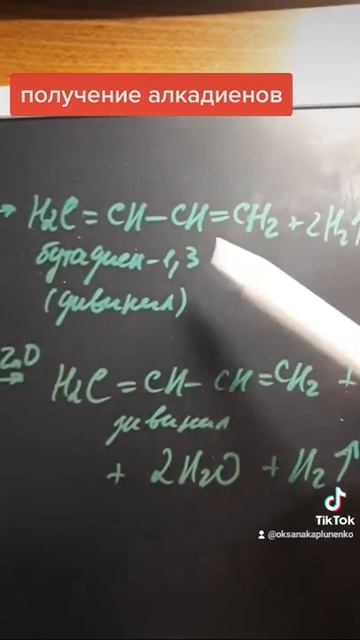 получение алкадиенов
→ H2C=CH-CH=CH2 + 2H2↑
бутадиен-1,3
(дивинил)
ZnO
→ H2C=CH-CH=CH2 +
дивинил
+ 2H2O + H2↑
TikTok
@oksanakaplunenko